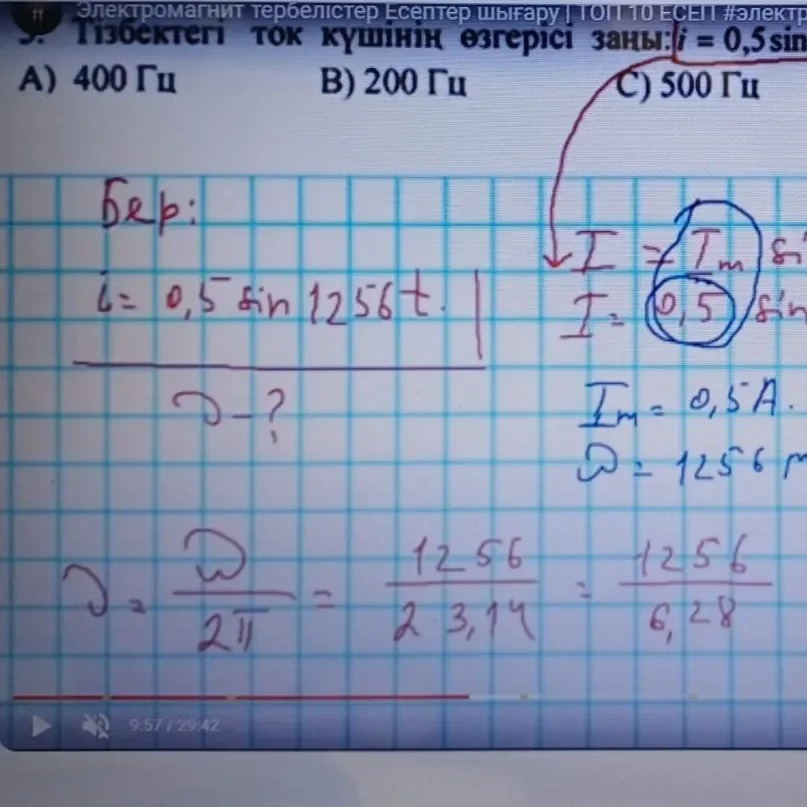 Электромагнит тербелістер Есептер шығару | ТОП 10 ЕСЕП #электр
9. Тізбектегі ток күшінің өзгерісі заңы: i = 0,5 sin
A) 400 Гц B) 200 Гц C) 500 Гц
Бер:
i = 0,5 sin 1256 t.
I = Im si
I = 0,5 sin
ν - ?
Im = 0,5 A.
ω = 1256
ν = ω / 2π = 1256 / 2·3,14 = 1256 / 6,28
9:57 / 29:42